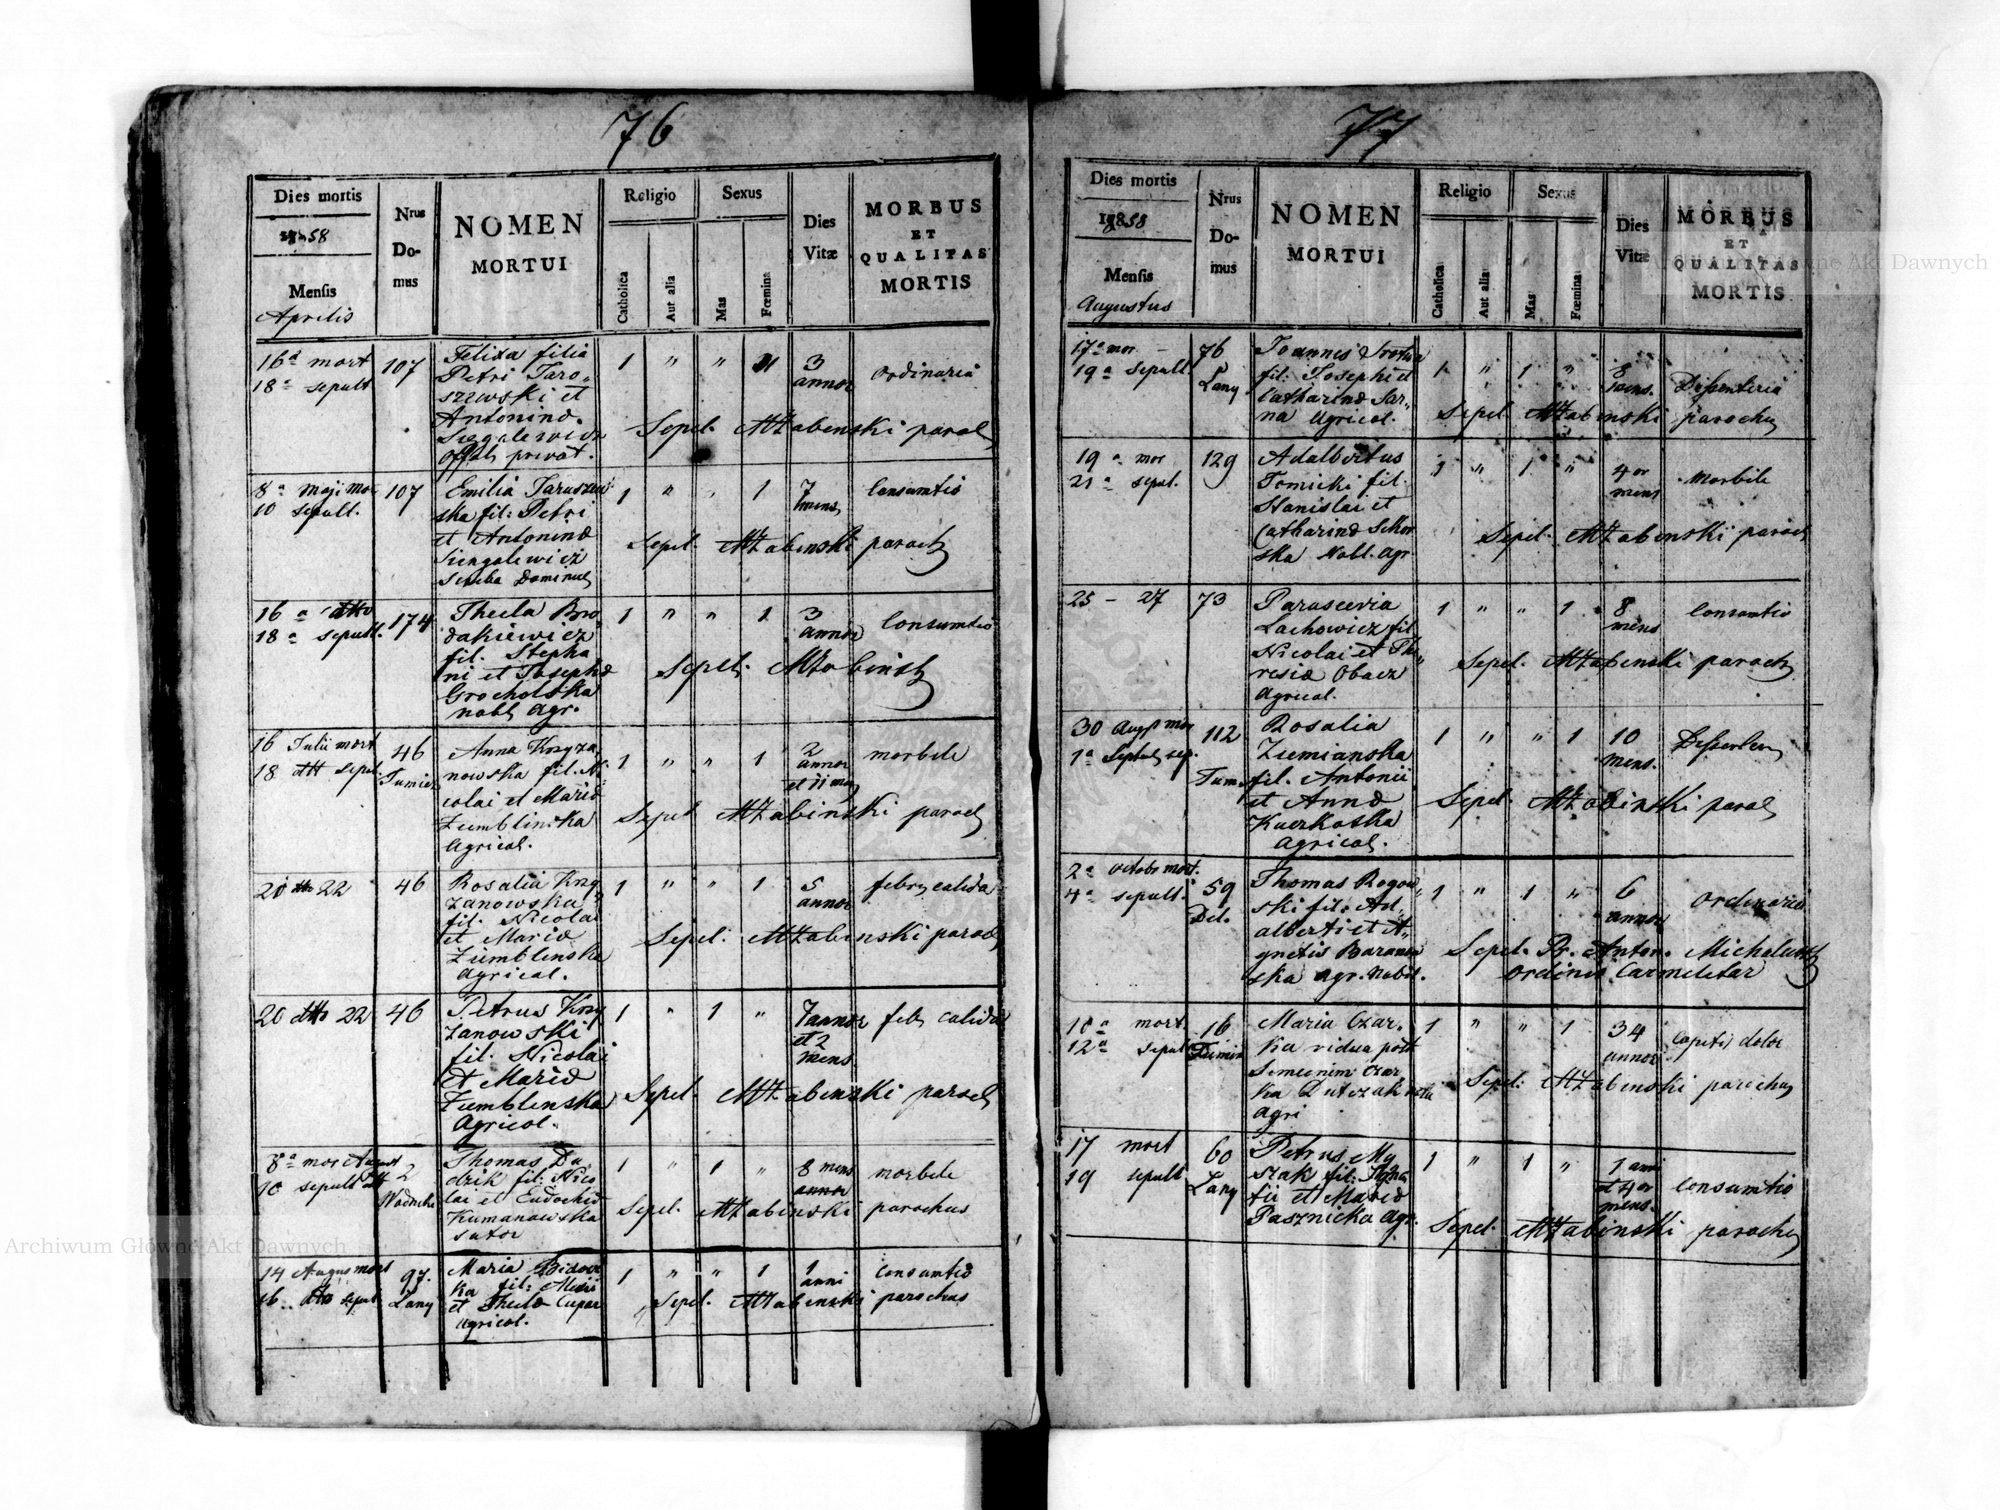 76
Dies mortis
1858
Mensis
Aprilis
Nrus
Do-
mus
NOMEN
MORTUI
Religio
Catholica
Aut alia
Sexus
Mas
Fœmina
Dies
Vitæ
MORBUS
ET
QUALITAS
MORTIS
16ª mort
18ª sepult
107
Felixa filia
Petri Jaro„
szewski et
Antonina
privat.
1 „ „ 1
3
annor
ordinaria
Sepel. MZabenski paroch
8ª Maji mor
10 sepult.
107
Emilia Jaruszew
ska fil: Petri
et Antonina
Siengalewicz
Scriba Dominus
1 „ „ 1
7
mens
Consumtio
Sepel. MZabenski paroch
16ª dtto
18ª sepult.
174
Thecla Bro
dakiewicz
fil. Stepha
ni et Josepha
Grocholska
nobl agr.
1 „ „ 1
3
annor
Consumtio
Sepel. MZabinsk
16 Julii mort
18 dtt sepel.
46
Anna Krzyza
nowska fil. Ni
colai et Maria
Zumblinska
Agricol.
1 „ „ 1
2
annor
et 11 men
morbile
Sepel MZabinski paroch
20 dtto 22
46
Rosalia Krzy
zanowska
fil. Nicolai
et Maria
Zumblenska
agricol.
1 „ „ 1
5
annor
febry calida
Sepel. MZabenski paroch
20 dtto 22
46
Petrus Krzy
zanowski
fil. Nicolai
et Maria
Zumblenska
Agricol.
1 „ 1 „
7 annor
et 2
mens
feb calida
Sepel. MZabenski paroch
8ª mor August
10 sepult dtt
2
Thomas Du
drik fil: Nico
lai et Eudochia
Kumanowska
sutor
1 „ 1 „
8 mens
annor
morbile
Sepel. MZabinski parochus
14 Augus mort
16 „ dtto sepult
97.
Lany
Maria
ka fil: Alexii
et Thecla Cupar
agricol.
1 „ „ 1
1
anni
Consumtio
Sepel. MZabenski parochus
77
Dies mortis
1858
Mensis
Augustus
Nrus
Do-
mus
NOMEN
MORTUI
Religio
Catholica
Aut alia
Sexus
Mas
Fœmina
Dies
Vitæ
MORBUS
ET
QUALITAS
MORTIS
17ª mor –
19ª Sepult
76
Lany
Joannes
fil: Josephi et
Catharina Sar„
na agricol.
1 „ 1 „
8
mens.
Dissenteria
Sepel. MZabinski parochus
19ª mor
21ª sepul.
129
Adalbertus
Tomicki fil.
Stanislai et
Catharina Sekor
ska Nobl. agr.
1 „ 1 „
4 or
mens
Morbile
Sepel. MZabenski paroch
25 – 27
73
Parascevia
Lachowicz fil
Nicolai et The„
resia Obacz
agricol.
1 „ „ 1
8
mens
Consumtio
Sepel. MZabenski paroch
30 Augst mor
1ª Septeb sep.
112
Tum.
Rosalia
Ziemianska
fil. Antonii
et Anna
Kuerkoska
agricol.
1 „ „ 1
10
mens.
Sepel. MZabinski paroch
2ª octobr mort.
4ª sepult.
59
Thomas Rogow„
ski fil: Ad„
alberti et A„
gnetis Baranow
ska agr. Nobil.
1 „ 1 „
6
annor
ordinaria
Sepel. Pr. Anton.
ordinis Carmelitar
10ª mort.
12ª sepult
16
Tumin
Maria Czar.
ka vidua post
Simeonim Czar
ka Dutczak nata
agri
1 „ „ 1
34
annor
Capitis dolor
Sepel. MZabenski parochus
17 mort
19 sepult
60
Lany
Petrus My
szak fil: Igna
tii et Maria
Pasznicka agr.
1 „ 1 „
1 ani
et 4 or
mens.
Consumtio
Sepel MZabinski parochus
Archiwum Główne Akt Dawnych
Archiwum Główne Akt Dawnych